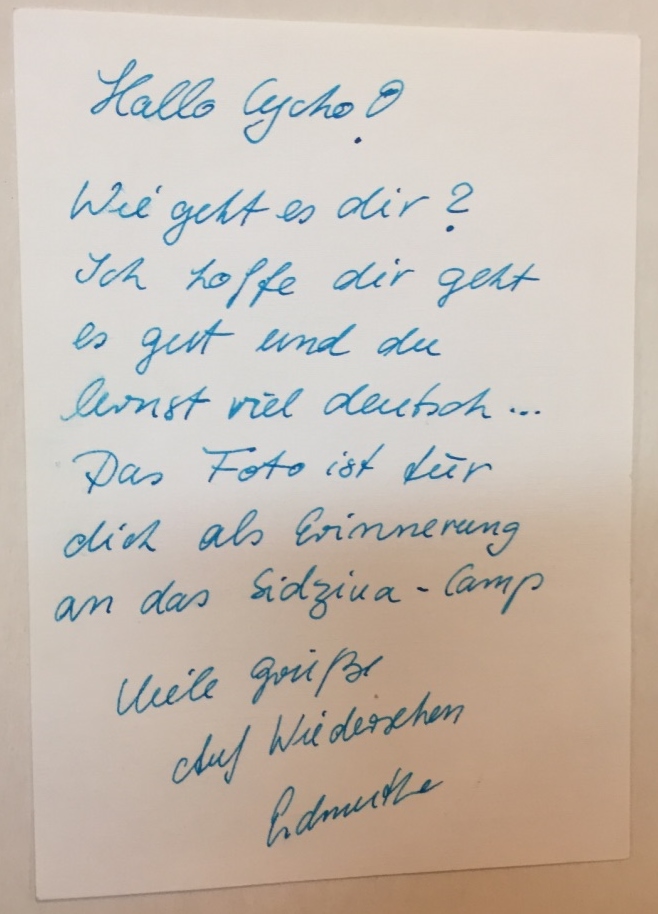 Hallo Cycho!
Wie geht es dir?
Ich hoffe dir geht
es gut und du
lernst viel deutsch...
Das Foto ist für
dich als Erinnerung
an das Sidzina-Camp
Viele Grüße
Auf Wiedersehen
Erdmuthe